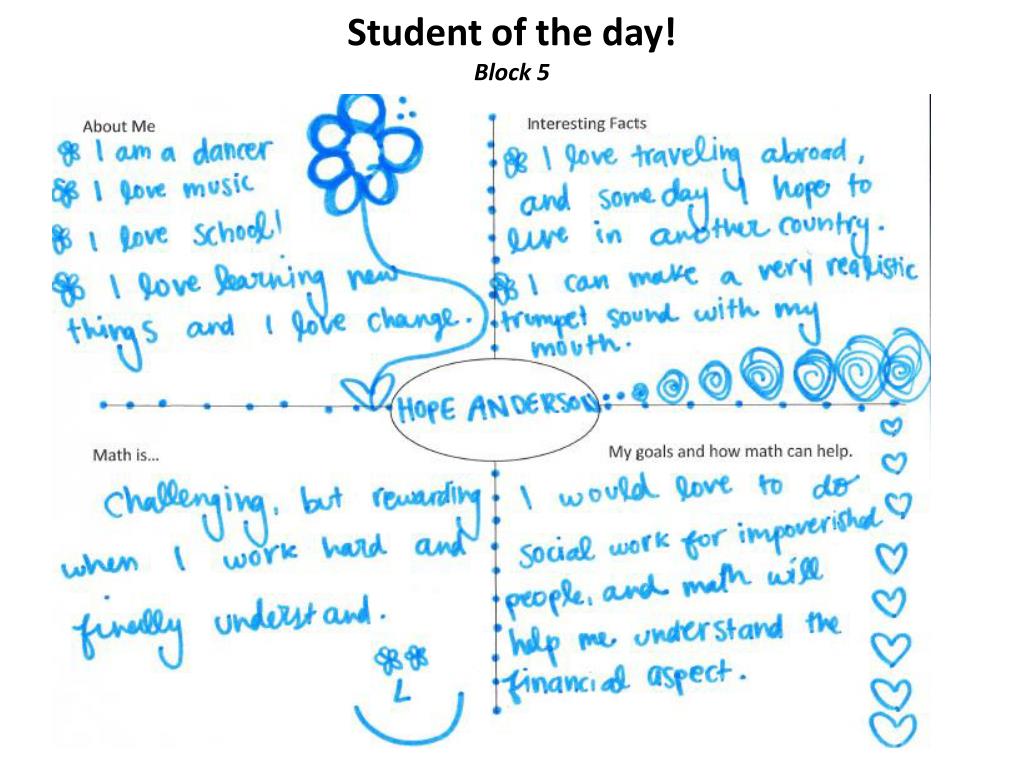 Student of the day!
Block 5
About Me
I am a dancer
I love music
I love school!
I love learning new
things and I love change.
Interesting Facts
I love traveling abroad,
and someday I hope to
live in another country.
I can make a very realistic
trumpet sound with my
mouth.
HOPE ANDERSON
Math is...
Challenging, but rewarding
when I work hard and
finally understand.
My goals and how math can help.
I would love to do
social work for impoverished
people, and math will
help me understand the
financial aspect.